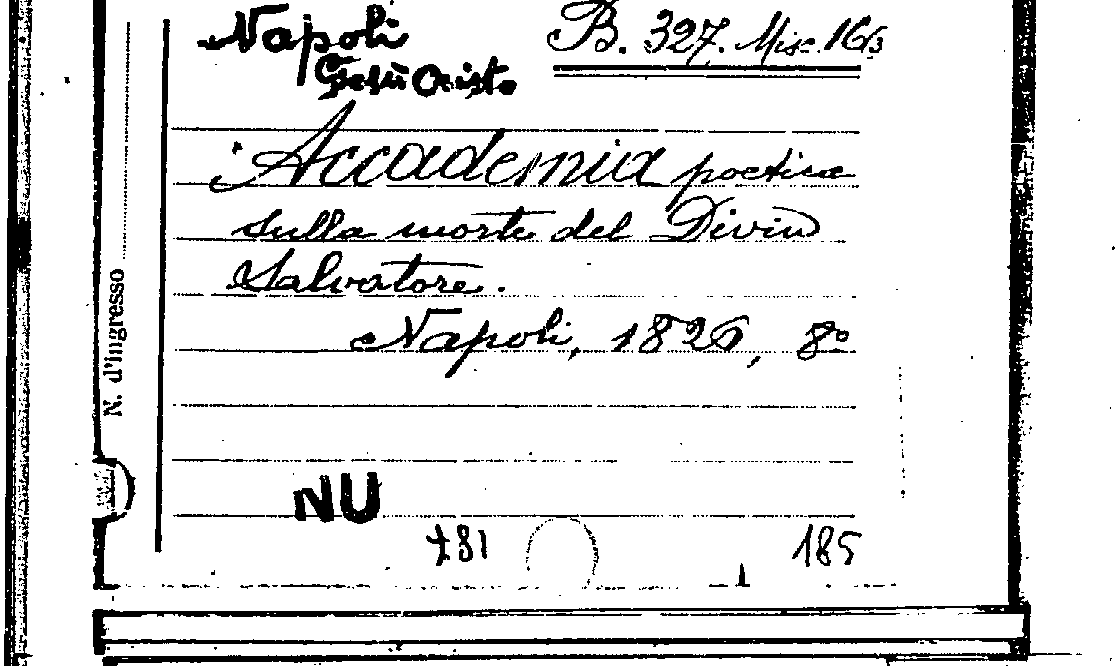 Napoli B. 327. Misc. 16/3
Gesù Cristo
Accademia poetica
sulla morte del Divin
Salvatore.
Napoli, 1826, 8º
N. d'ingresso
NU
181 185